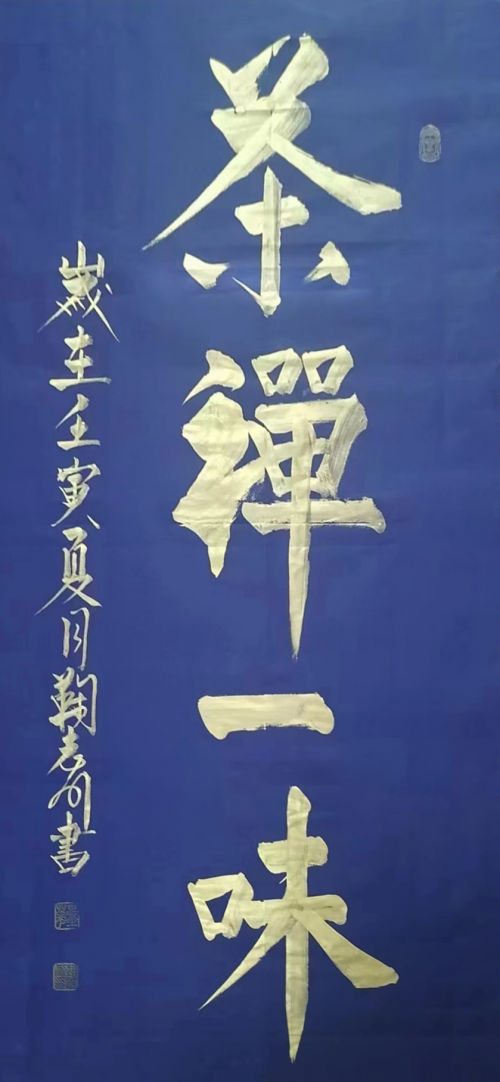 茶禪一味
歲在壬寅夏月鞠
書